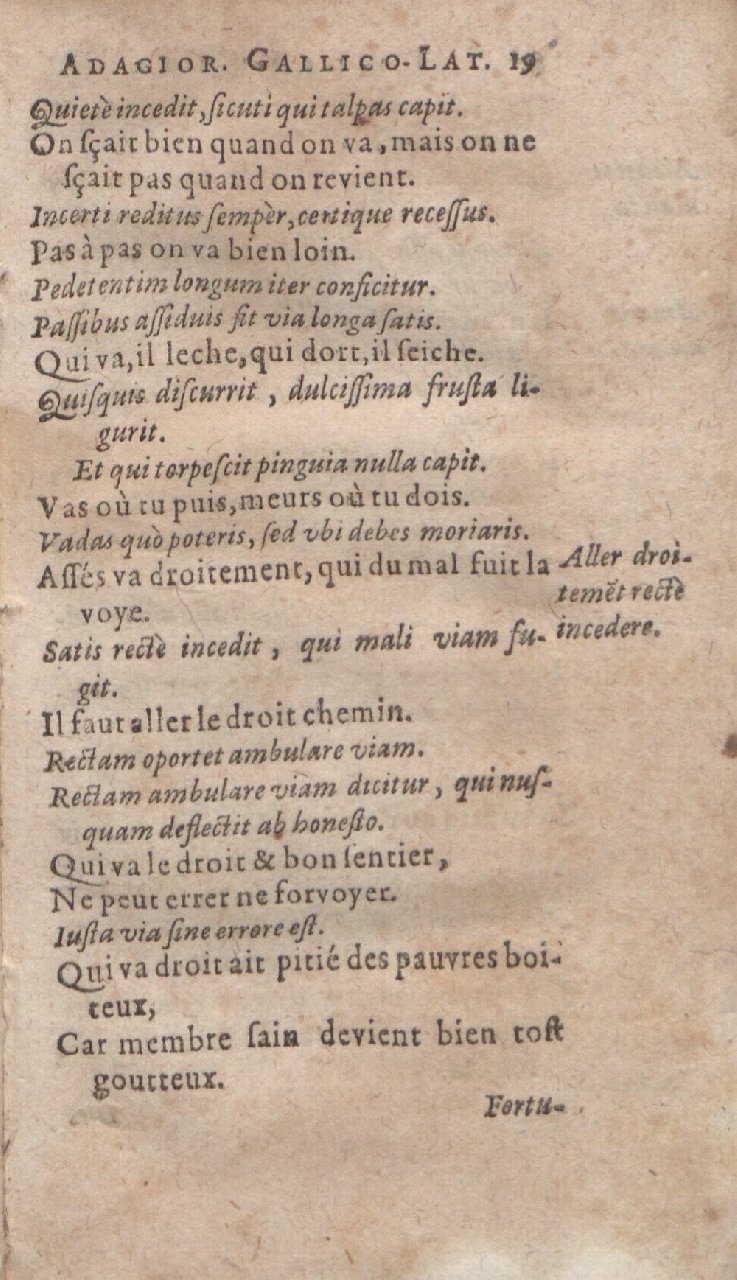 ADAGIOR. GALLICO-LAT. 19
Quietè incedit, ſicuti qui talpas capit.
On ſçait bien quand on va, mais on ne
ſçait pas quand on revient.
Incerti reditus ſempèr, certique receſſus.
Pas à pas on va bien loin.
Pedetentim longum iter conficitur.
Paſſibus aſſiduis fit via longa ſatis.
Qui va, il leche, qui dort, il ſeiche.
Quiſquis diſcurrit, dulciſſima fruſta li-
gurit.
Et qui torpeſcit pinguia nulla capit.
Vas où tu puis, meurs où tu dois.
Vadas quò poteris, ſed vbi debes moriaris.
Aſſés va droitement, qui du mal fuit la
voye.
Aller droi-
temẽt rectè
incedere.
Satis rectè incedit, qui mali viam fu-
git.
Il faut aller le droit chemin.
Rectam oportet ambulare viam.
Rectam ambulare viam dicitur, qui nuſ-
quam deflectit ab honeſto.
Qui va le droit & bon ſentier,
Ne peut errer ne forvoyer.
Iuſta via ſine errore eſt.
Qui va droit ait pitié des pauvres boi-
teux,
Car membre ſain devient bien toſt
goutteux.
Fortu-